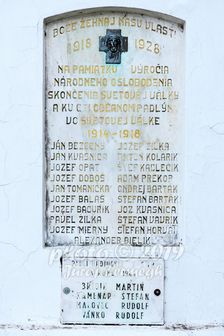 BOŽE ŽEHNAJ NAŠU VLASŤ
1918 1928
NA PAMIATKU VÝROČIA
NÁRODNÉHO OSLOBODENIA
SKONČENIA SVETOVEJ VÁLKY
A KU CTI OBČANOM PADLÝM
VO SVETOVEJ VÁLKE
1914-1918
JÁN BEZDENY JOZEF ŽILKA
JÁN KVASNICA ANTON KOLÁRIK
JOZEF OPAT ŠTEF KADLEČÍK
JOZEF DUBOŠ ADAM PREKOP
JÁN TOMANIČKA ONDREJ BARTÁK
JOZEF BALÁŠ ŠTEFAN BARTÁK
JOZEF BACULÍK JOZ KVASNICA
PAVEL ŽILKA ŠTEFAN VAVRÍK
JOZEF MIERNY ŠTEFAN HORVÁT
ALEXANDER BIELIK
MARTIN
KAMENÁR ŠTEFAN
RUDOLF
VANKO RUDOLF